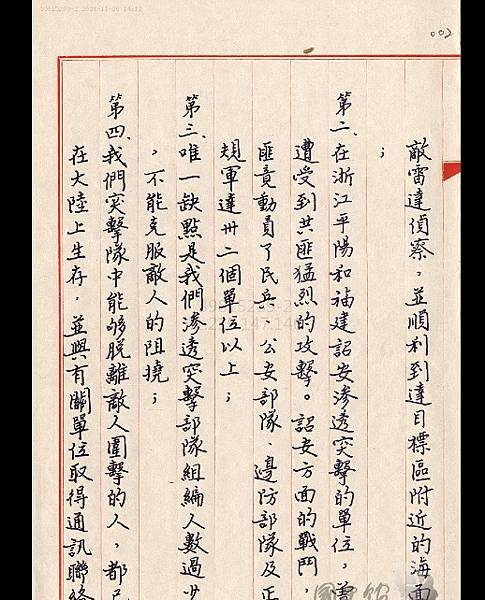 002
敵雷達偵察，並順利到達目標區附近的海面
；
第二、在浙江平陽和福建詔安滲透突擊的單位，
遭受到共匪猛烈的攻擊。詔安方面的戰鬥，
匪竟動員了民兵、公安部隊、邊防部隊及正
規軍達卅二個單位以上；
第三、唯一缺點是我們滲透突擊部隊組編人數過少
，不能克服敵人的阻撓；
第四、我們突擊隊中能够脱離敵人圍擊的人，都已
在大陸上生存，並與有關單位取得通訊聯絡